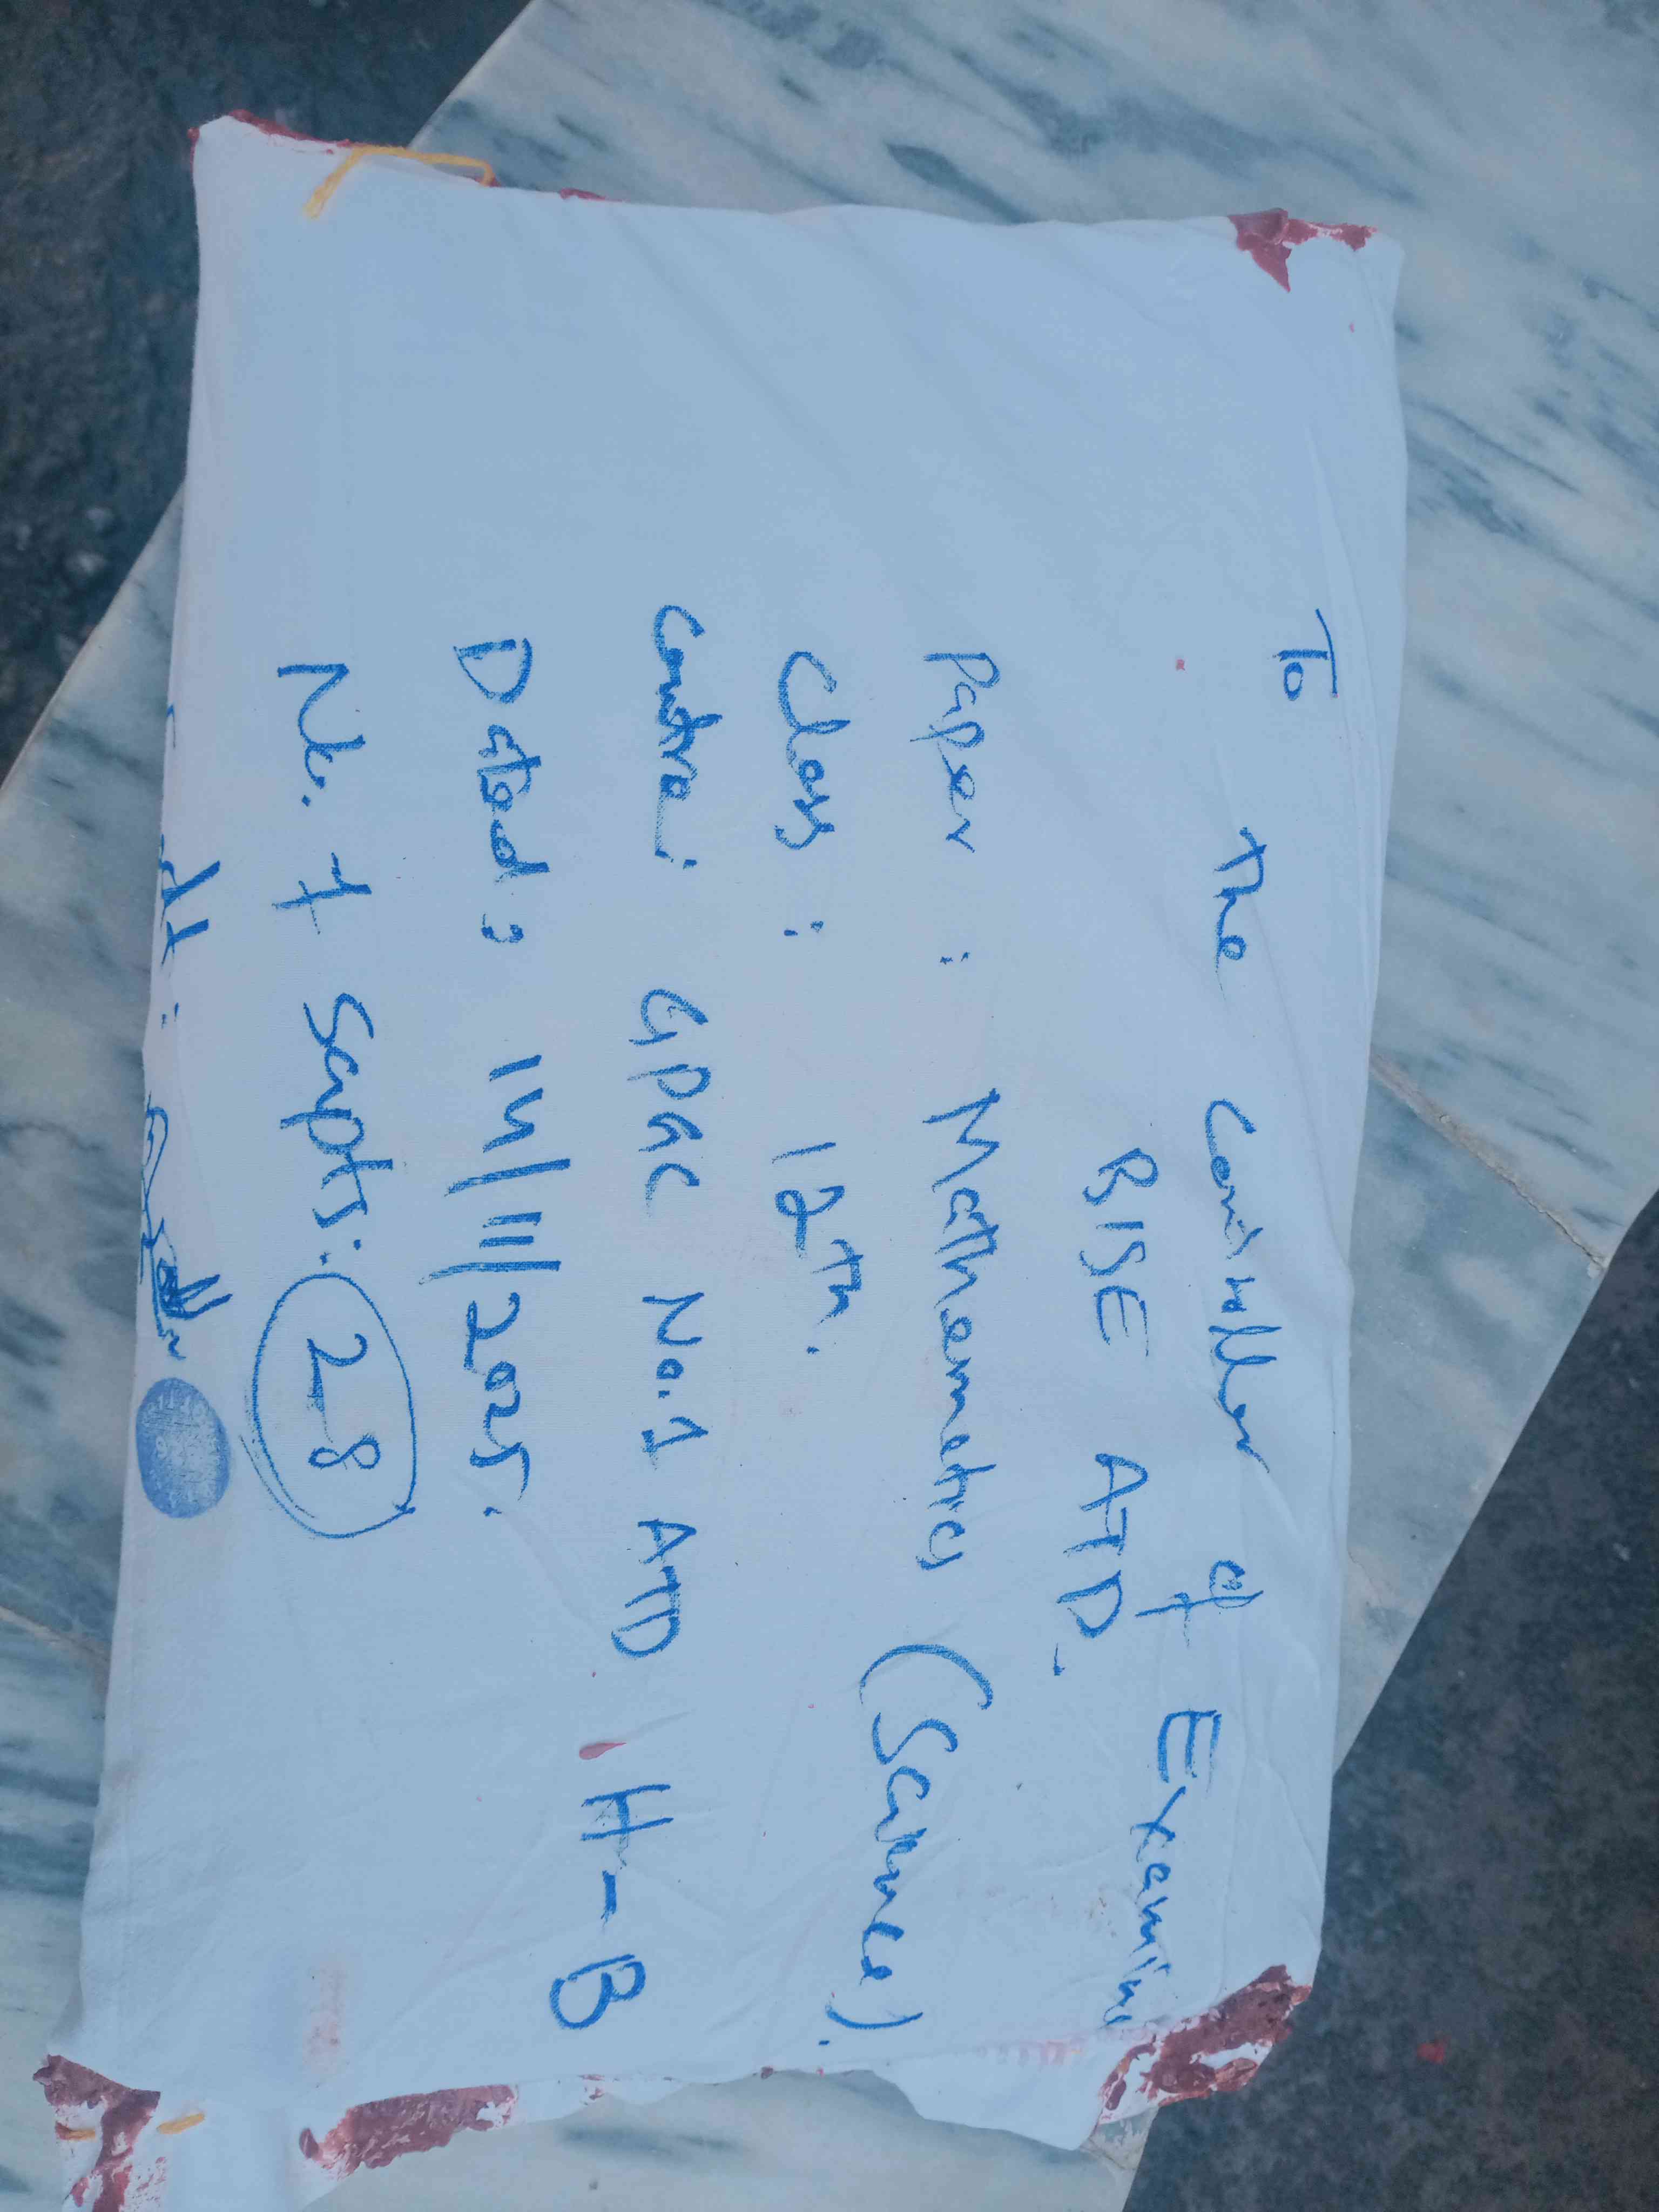 To
The Controller of Examin
BISE ATD.
Paper : Mathematics (Science).
Class : 12th.
Centre: GPGC No.1 ATD H-B
Dated: 14/11/2025.
No. of Scripts: 28